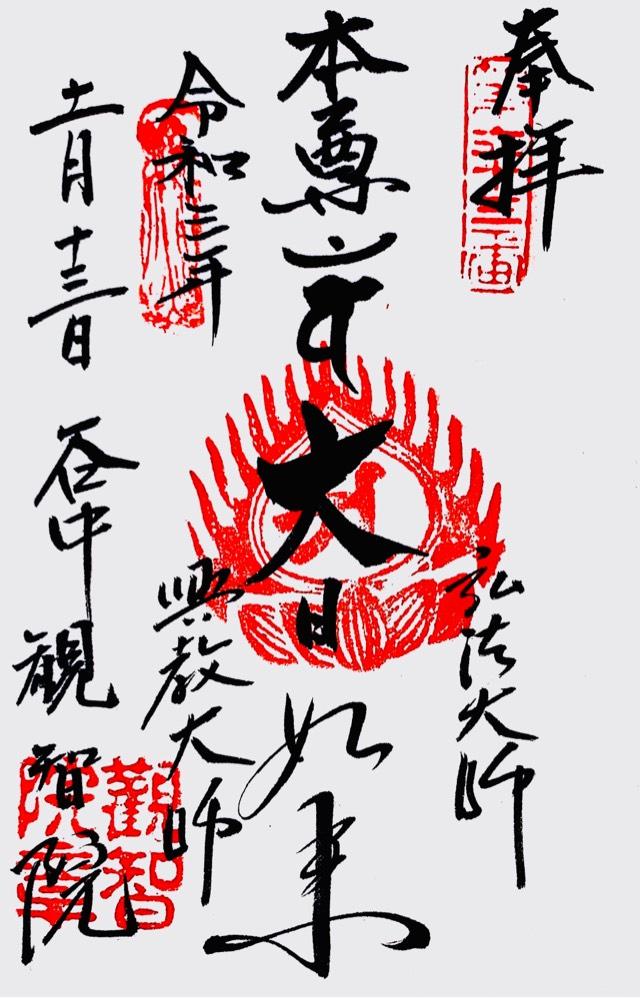 奉拝
弘法大師
本尊
大日如来
興教大師
令和三年
十一月十三日
谷中
観智院
觀智院